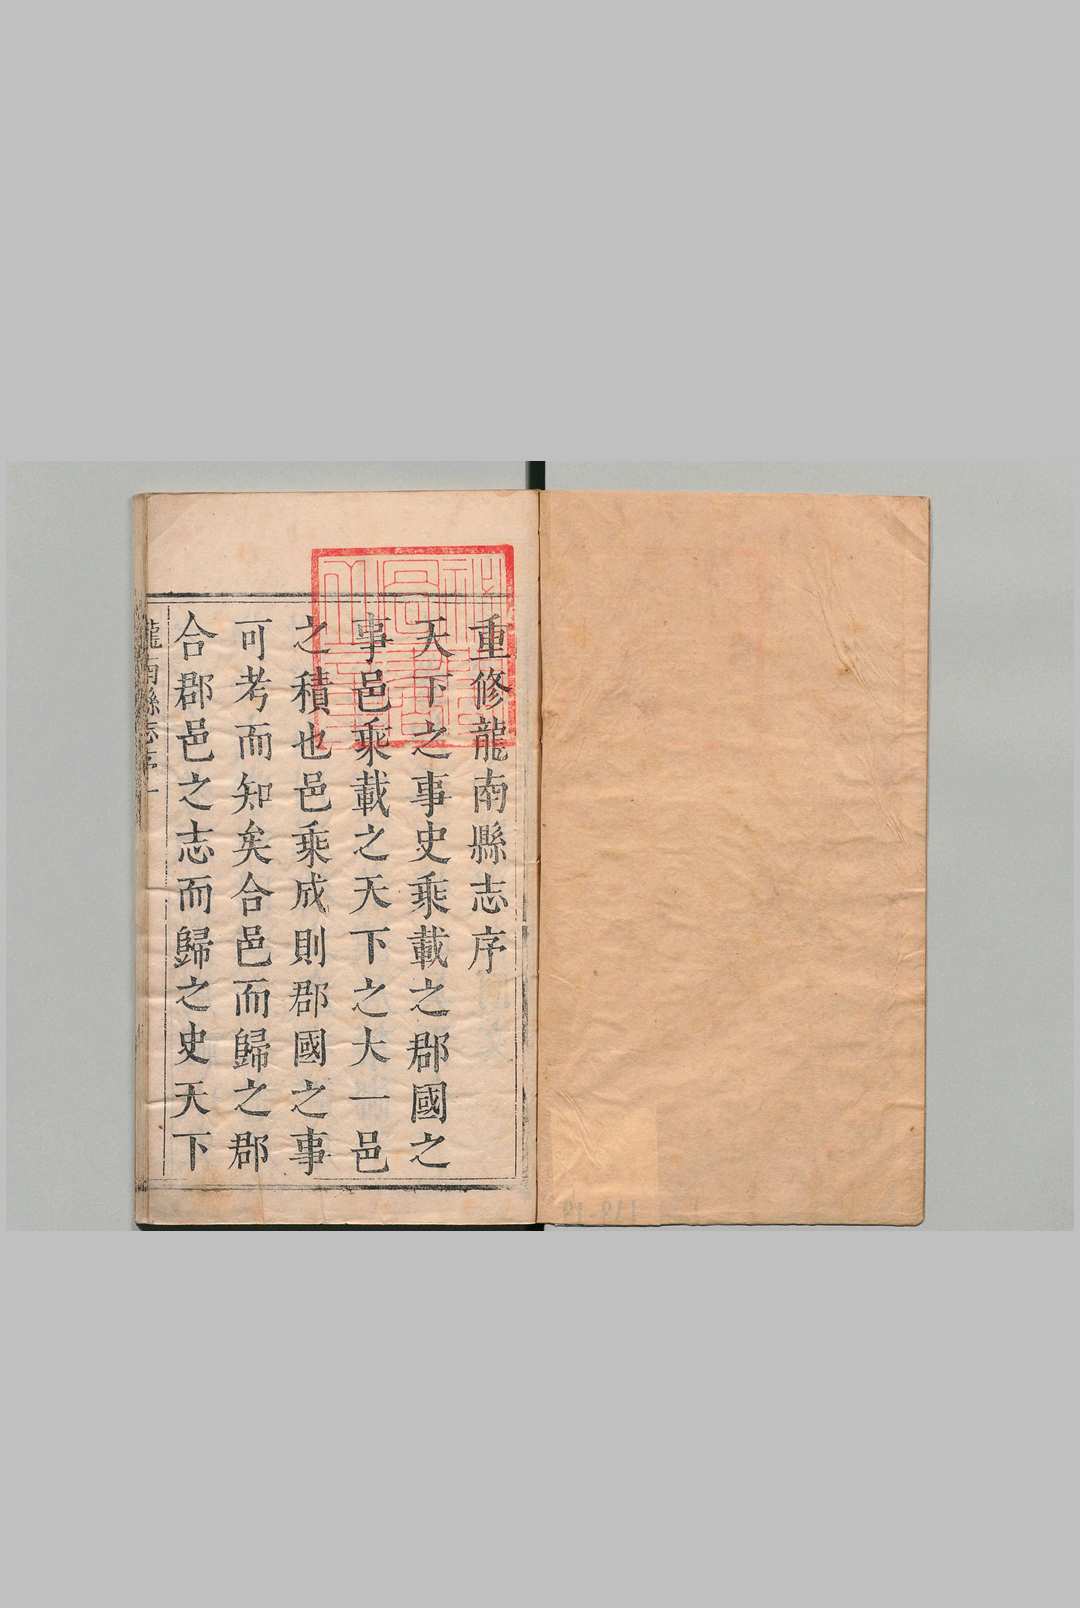 重修龍南縣志序
天下之事史乘載之郡國之
事邑乘載之天下之大一邑
之積也邑乘成則郡國之事
可考而知矣合邑而歸之郡
合郡邑之志而歸之史天下
龍南縣志序一